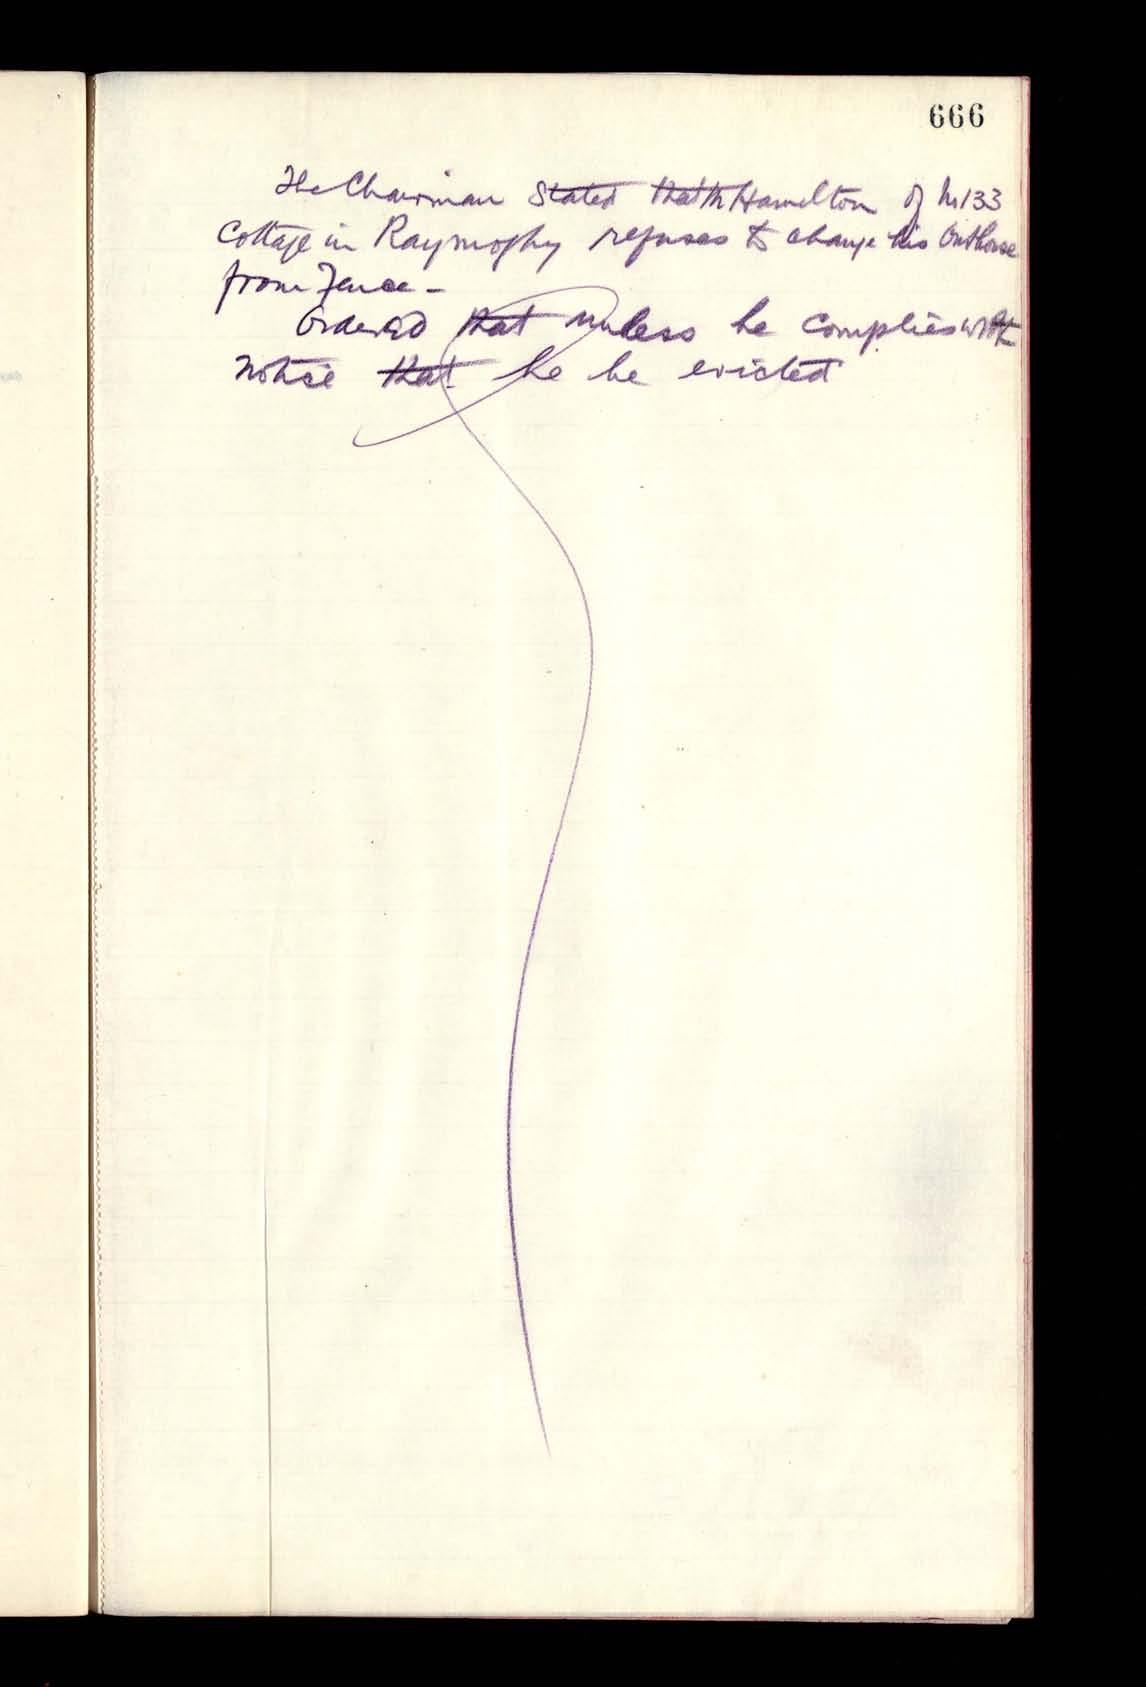 666
The Chairman Stated that Mr Hamilton of No 133
Cottage in Raymoghy refuses to change his Outhouse
from Fence -
Ordered that unless he complies with
notice that he be evicted